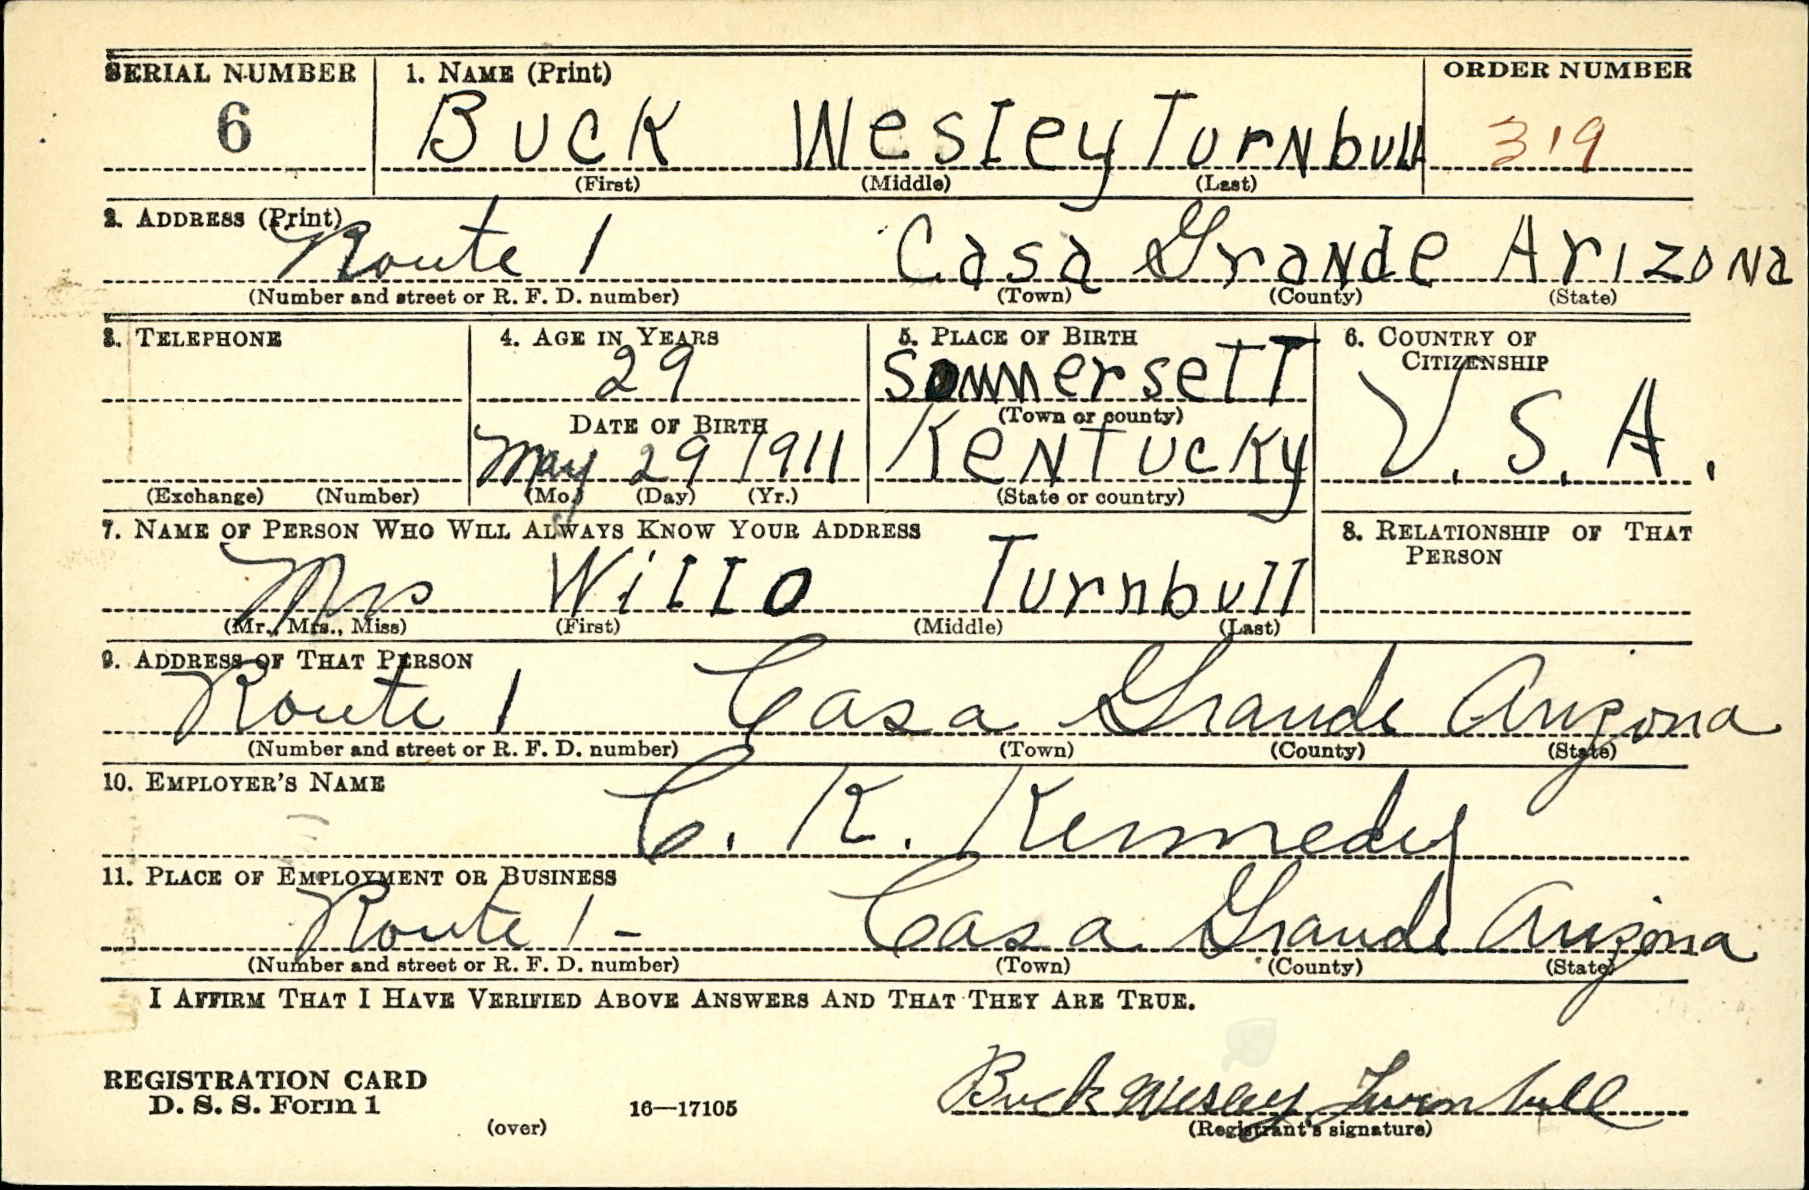 SERIAL NUMBER 1. NAME (Print) ORDER NUMBER
6 BUCK WesIey TurNbull 319
(First) (Middle) (Last)
2. ADDRESS (Print)
Route 1 Casa Grande Arizona
(Number and street or R. F. D. number) (Town) (County) (State)
3. TELEPHONE 4. AGE IN YEARS 5. PLACE OF BIRTH 6. COUNTRY OF CITIZENSHIP
29 Sommersett
DATE OF BIRTH (Town or county)
May 29 1911 Kentucky U.S.A.
(Exchange) (Number) (Mo.) (Day) (Yr.) (State or country)
7. NAME OF PERSON WHO WILL ALWAYS KNOW YOUR ADDRESS 8. RELATIONSHIP OF THAT PERSON
Mrs Willo Turnbull
(Mr., Mrs., Miss) (First) (Middle) (Last)
9. ADDRESS OF THAT PERSON
Route 1 Casa Grande Arizona
(Number and street or R. F. D. number) (Town) (County) (State)
10. EMPLOYER'S NAME
C. K. Kennedy
11. PLACE OF EMPLOYMENT OR BUSINESS
Route 1 - Casa Grande Arizona
(Number and street or R. F. D. number) (Town) (County) (State)
I AFFIRM THAT I HAVE VERIFIED ABOVE ANSWERS AND THAT THEY ARE TRUE.
REGISTRATION CARD
D. S. S. Form 1 16—17105 Buck Wesley Turnbull
(over) (Registrant's signature)